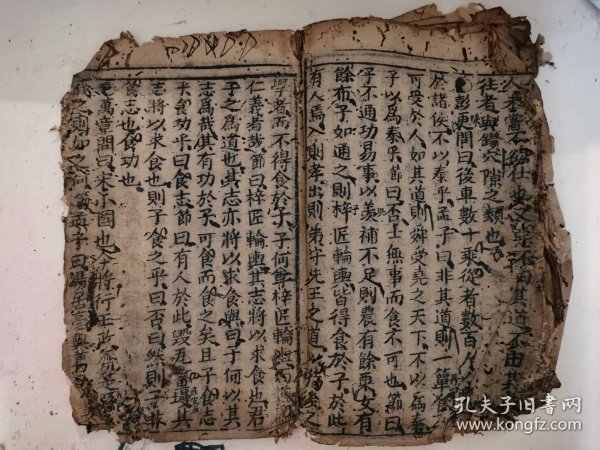 往者與鑽穴隙之類也
彭更問曰後車數十乘從者數百人
於諸侯不以泰乎孟子曰非其道則一簞食
可受於人如其道則舜受堯之天下不以為泰
子以為泰乎節曰否士無事而食不可也節曰
子不通功易事以羨補不足則農有餘粟女有
餘布子如通之則梓匠輪輿皆得食於子於此
有人焉入則孝出則弟守先王之道以待後之
學者而不得食於子子何尊梓匠輪輿而
仁義者哉節曰梓匠輪輿其志將以求食也君
子之為道也其志亦將以求食與曰子何以其
志為哉其有功於子可食而食之矣且子食志
乎食功乎曰食志節曰有人於此毀瓦畫墁其
志將以求食也則子食之乎曰否曰然則子非
食志也食功也
萬章問曰宋小國也今將行王政
之則如之何孟子曰湯居亳與葛
孔夫子旧书网
www.kongfz.com